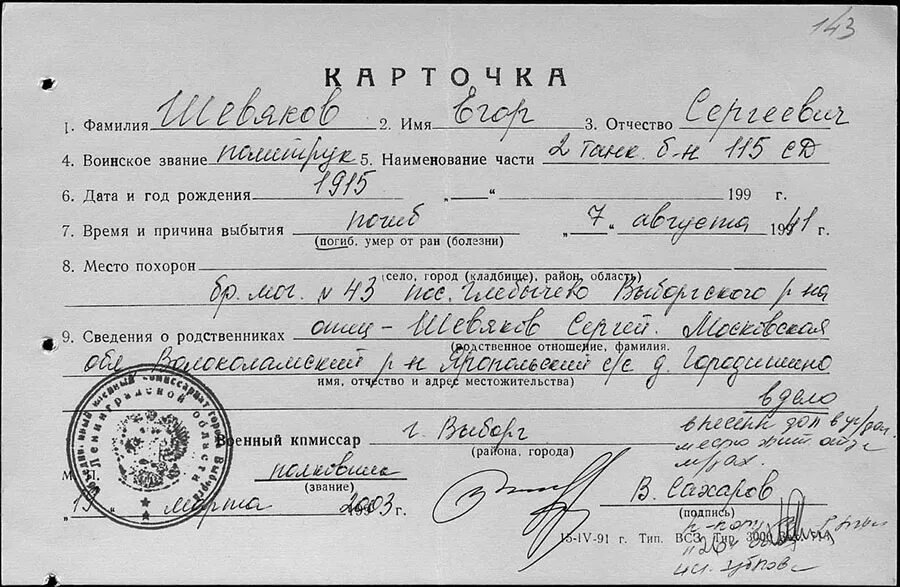 143
КАРТОЧКА
1. Фамилия Шевяков 2. Имя Егор 3. Отчество Сергеевич
4. Воинское звание политрук 5. Наименование части 2 танк. б-н 115 сд
6. Дата и год рождения 1915 „ “ 199 г.
7. Время и причина выбытия погиб „7 “ августа 1941 г.
(погиб, умер от ран (болезни)
8. Место похорон
(село, город (кладбище), район, область)
бр. мог. № 43 пос. Глебычево Выборгского р-на
9. Сведения о родственниках отец - Шевяков Сергей. Московская
(родственное отношение, фамилия.
обл Волоколамский р-н Яропольский с/с д. Городишино
имя, отчество и адрес местожительства)
в дело
Военный комиссар г. Выборг
(района, города)
внесены доп в
место жит отца
М. П. полковник
(звание)
В. Сахаров
(подпись)
марта 2003 г.
15-IV-91 г. Тип. ВСЗ Тир 3000
Ленинградской области